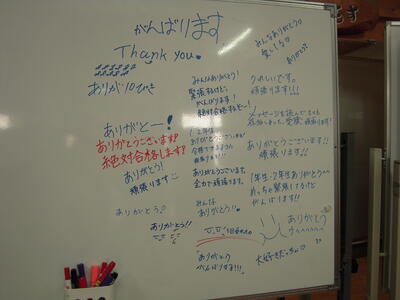 がんばります
Thank you.
ありが10ひき
ありがとー!
ありがとうございます!
絶対合格します!
ありがとう!
頑張ります
ありがとう。
ありがとう!!
みんなありがとう!
緊張するけど、
がんばります!
絶対合格するぞー!
ありがとうございます。
全力で頑張ります。
みんな
ありがとう!!
ありがとう
がんばります!!!
みんなありがとう。
愛してる♡
ありがとう
うれしいです。
頑張ります!!!
メッセージを読んで
ありがとうございます!!
頑張ります!!
1年生・2年生ありがとう
めっちゃ緊張してるけど
がんばります!!
ありがとう
大好きだっちゃ♡